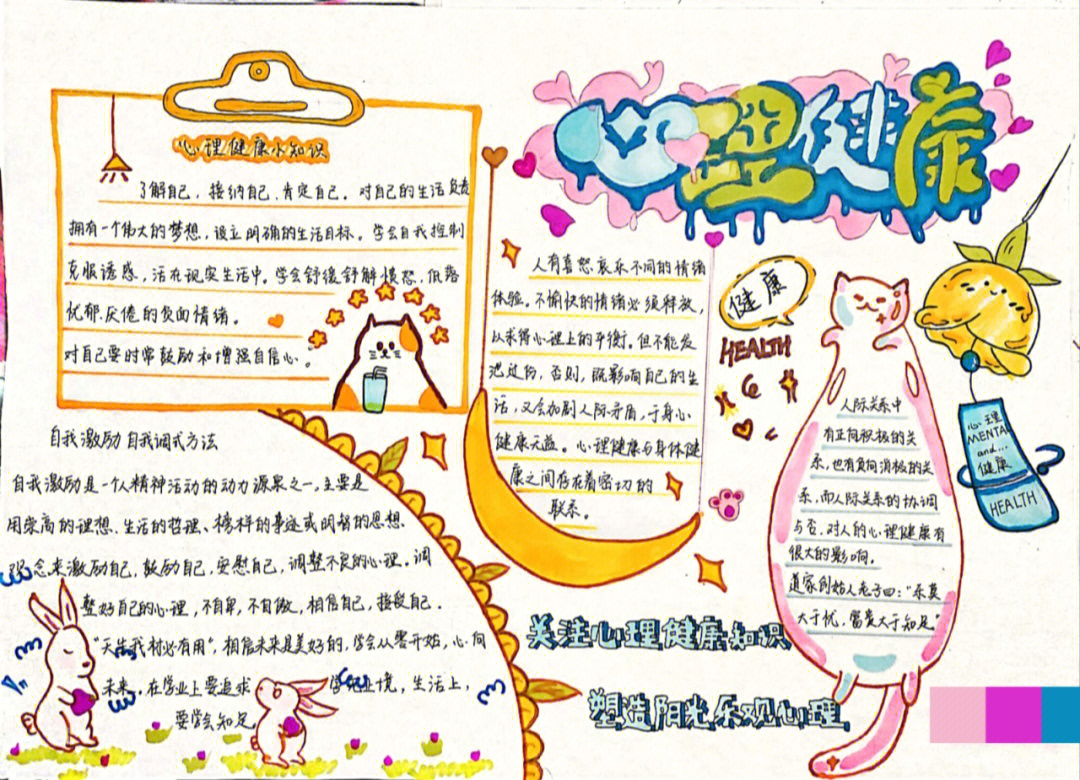 心理健康
心理健康小知识
了解自己,接纳自己,肯定自己。对自己的生活负责
拥有一个伟大的梦想,设立明确的生活目标。学会自我控制
克服诱惑,活在现实生活中。学会舒缓舒解愤怒,低落
忧郁厌倦的负面情绪。
对自己要时常鼓励和增强自信心。
自我激励 自我调式方法
自我激励是一个人精神活动的动力源泉之一,主要是
用崇高的理想、生活的哲理、榜样的事迹或明智的思想
观念来激励自己,鼓励自己,安慰自己,调整不良的心理。调
整好自己的心理,不自卑,不自傲,相信自己,接受自己。
"天生我材必有用",相信未来是美好的,学会从零开始,心向
未来,在学业上要追求 学无止境,生活上,
要学会知足
人有喜怒哀乐不同的情绪
体验。不愉快的情绪必须释放,
从求得心理上的平衡。但不能发
泄过份,否则,既影响自己的生
活,又会加剧人际矛盾,于身心
健康无益。心理健康与身体健
康之间存在着密切的
联系。
健康
HEALTH
人际关系中
有正向积极的关
系,也有负向消极的关
系,而人际关系的协调
与否,对人的心理健康有
很大的影响。
道家创始人老子四:"乐莫
大于忧,富莫大于知足"
心理
MENTAL
and...
健康
HEALTH
关注心理健康知识
塑造阳光乐观心理